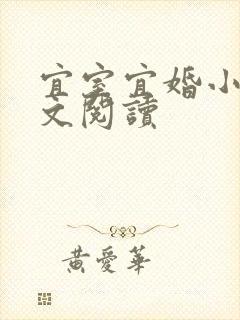 宜室宜婚小
文閱讀
黃愛華